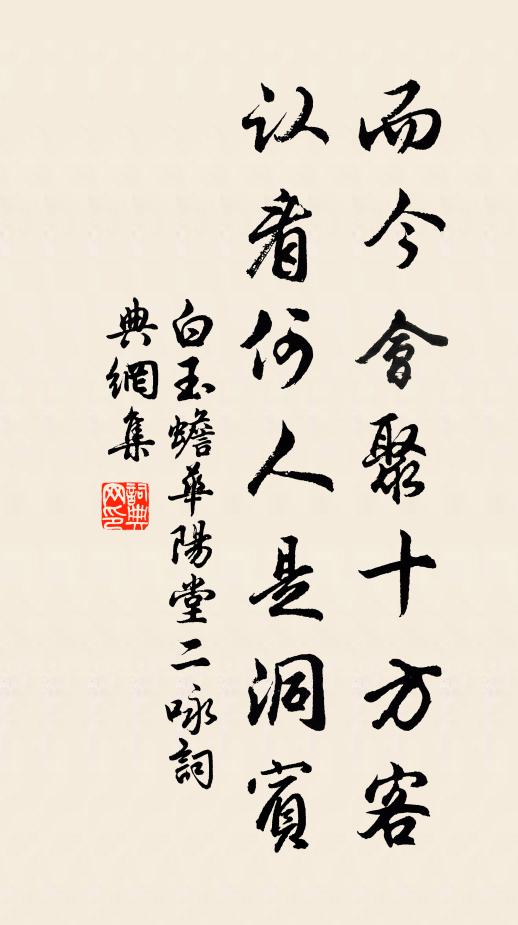 而今會聚十方客
认看何人是洞賓
白玉蟾華陽堂二咏詞
典網集
詞典网印